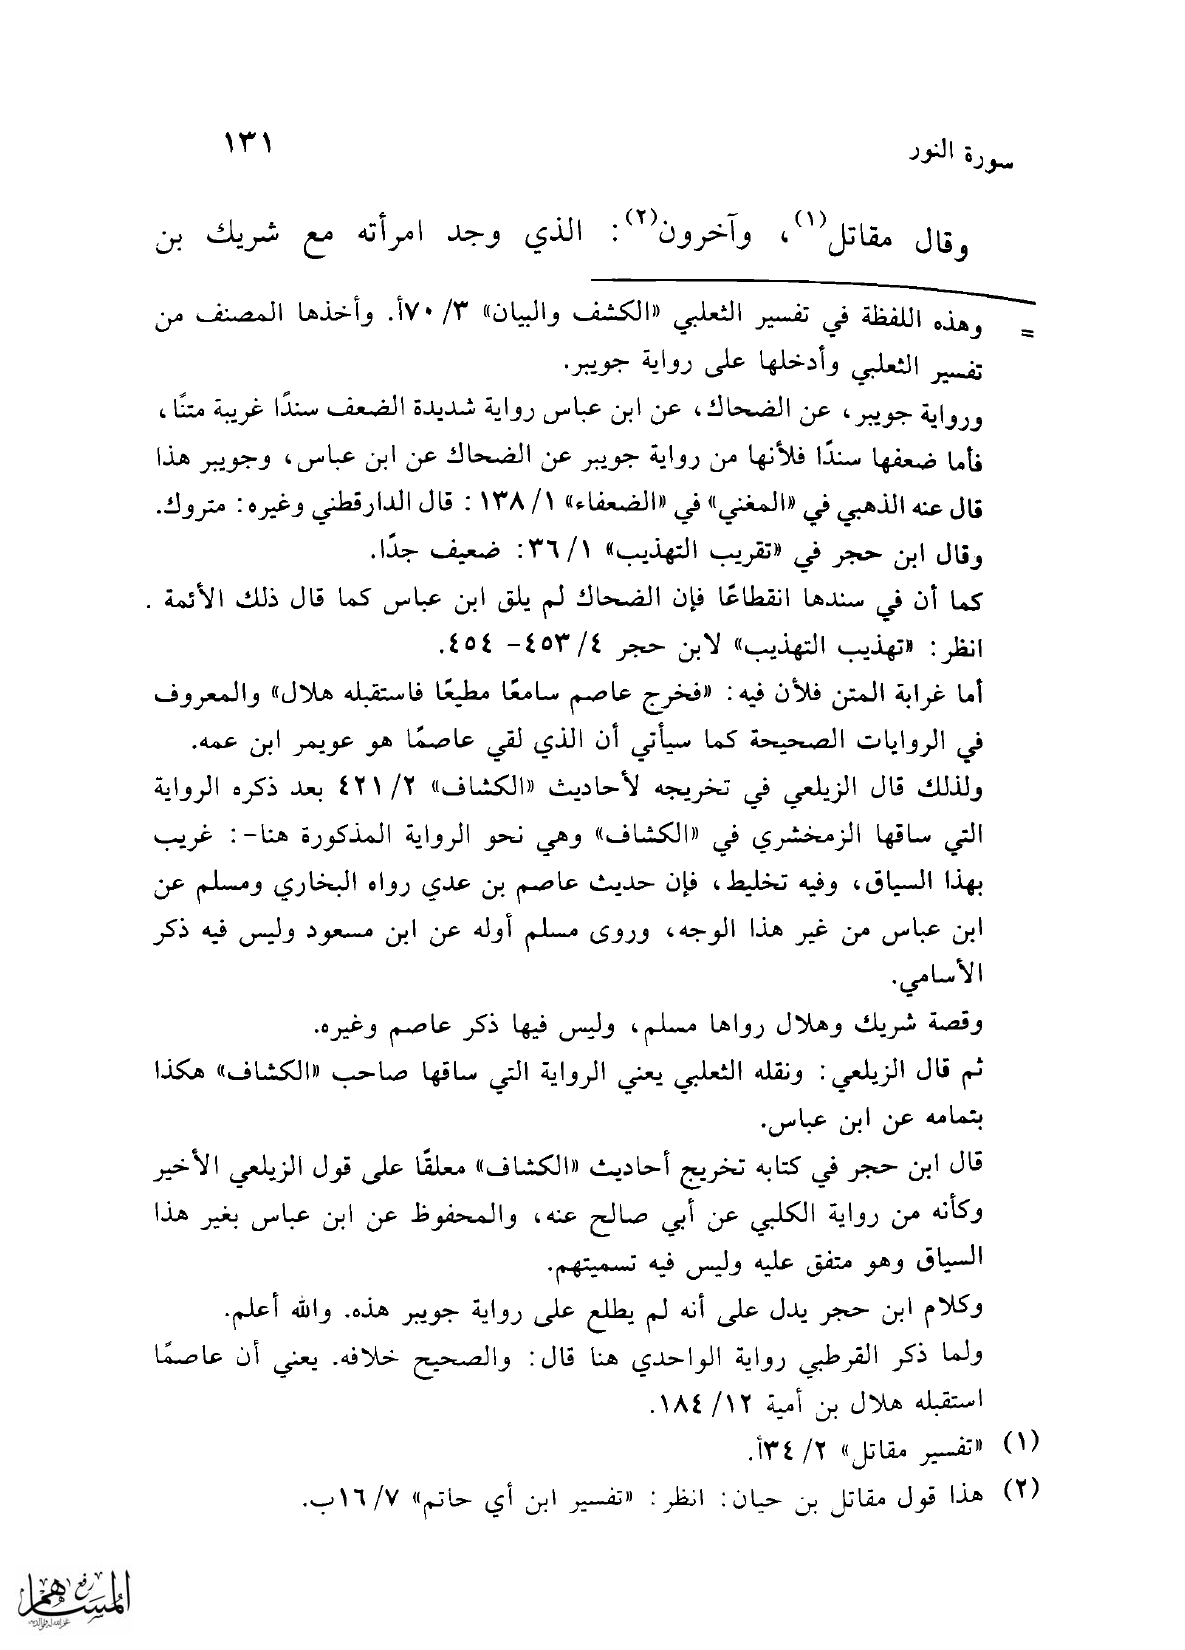 سورة النور ١٣١
وقال مقاتل(١)، وآخرون(٢): الذي وجد امرأته مع شريك بن
= وهذه اللفظة في تفسير الثعلبي «الكشف والبيان» ٣/ ٧٠أ. وأخذها المصنف من
تفسير الثعلبي وأدخلها على رواية جويبر.
ورواية جويبر، عن الضحاك، عن ابن عباس رواية شديدة الضعف سندًا غريبة متنًا،
فأما ضعفها سندًا فلأنها من رواية جويبر عن الضحاك عن ابن عباس، وجويبر هذا
قال عنه الذهبي في «المغني» في «الضعفاء» ١/ ١٣٨: قال الدارقطني وغيره: متروك.
وقال ابن حجر في «تقريب التهذيب» ١/ ٣٦: ضعيف جدًا.
كما أن في سندها انقطاعًا فإن الضحاك لم يلق ابن عباس كما قال ذلك الأئمة .
انظر: «تهذيب التهذيب» لابن حجر ٤/ ٤٥٣- ٤٥٤.
أما غرابة المتن فلأن فيه: «فخرج عاصم سامعًا مطيعًا فاستقبله هلال» والمعروف
في الروايات الصحيحة كما سيأتي أن الذي لقي عاصمًا هو عويمر ابن عمه.
ولذلك قال الزيلعي في تخريجه لأحاديث «الكشاف» ٢/ ٤٢١ بعد ذكره الرواية
التي ساقها الزمخشري في «الكشاف» وهي نحو الرواية المذكورة هنا-: غريب
بهذا السياق، وفيه تخليط، فإن حديث عاصم بن عدي رواه البخاري ومسلم عن
ابن عباس من غير هذا الوجه، وروى مسلم أوله عن ابن مسعود وليس فيه ذكر
الأسامي.
وقصة شريك وهلال رواها مسلم، وليس فيها ذكر عاصم وغيره.
ثم قال الزيلعي: ونقله الثعلبي يعني الرواية التي ساقها صاحب «الكشاف» هكذا
بتمامه عن ابن عباس.
قال ابن حجر في كتابه تخريج أحاديث «الكشاف» معلقًا على قول الزيلعي الأخير
وكأنه من رواية الكلبي عن أبي صالح عنه، والمحفوظ عن ابن عباس بغير هذا
السياق وهو متفق عليه وليس فيه تسميتهم.
وكلام ابن حجر يدل على أنه لم يطلع على رواية جويبر هذه. والله أعلم.
ولما ذكر القرطبي رواية الواحدي هنا قال: والصحيح خلافه. يعني أن عاصمًا
استقبله هلال بن أمية ١٢/ ١٨٤.
(١) «تفسير مقاتل» ٢/ ٣٤أ.
(٢) هذا قول مقاتل بن حيان: انظر: «تفسير ابن أي حاتم» ٧/ ١٦ب.
رفع
المساهم